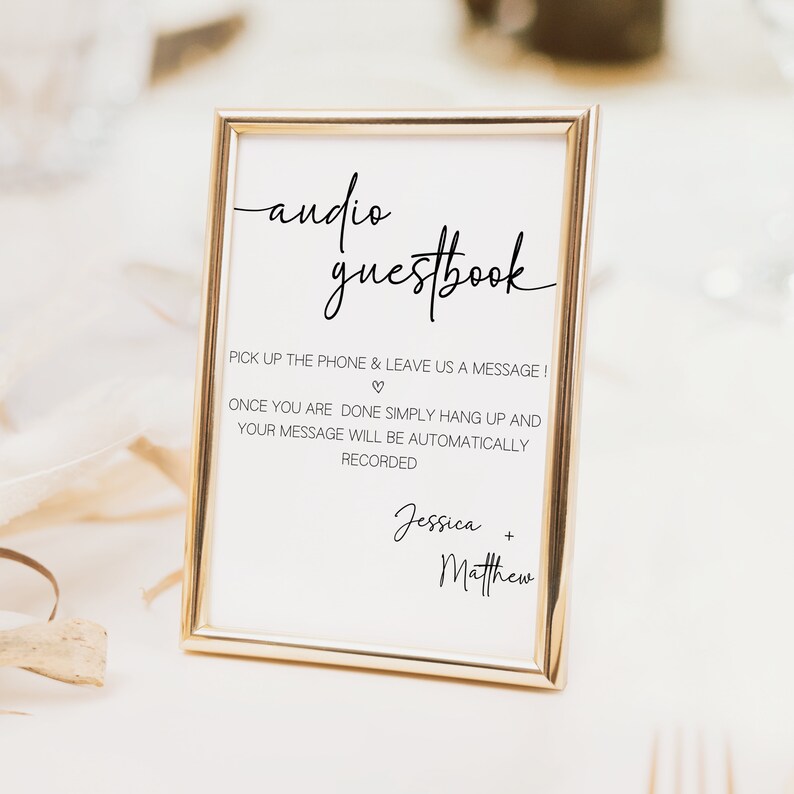 audio
guestbook
PICK UP THE PHONE & LEAVE US A MESSAGE !
♡
ONCE YOU ARE DONE SIMPLY HANG UP AND
YOUR MESSAGE WILL BE AUTOMATICALLY
RECORDED
Jessica +
Matthew